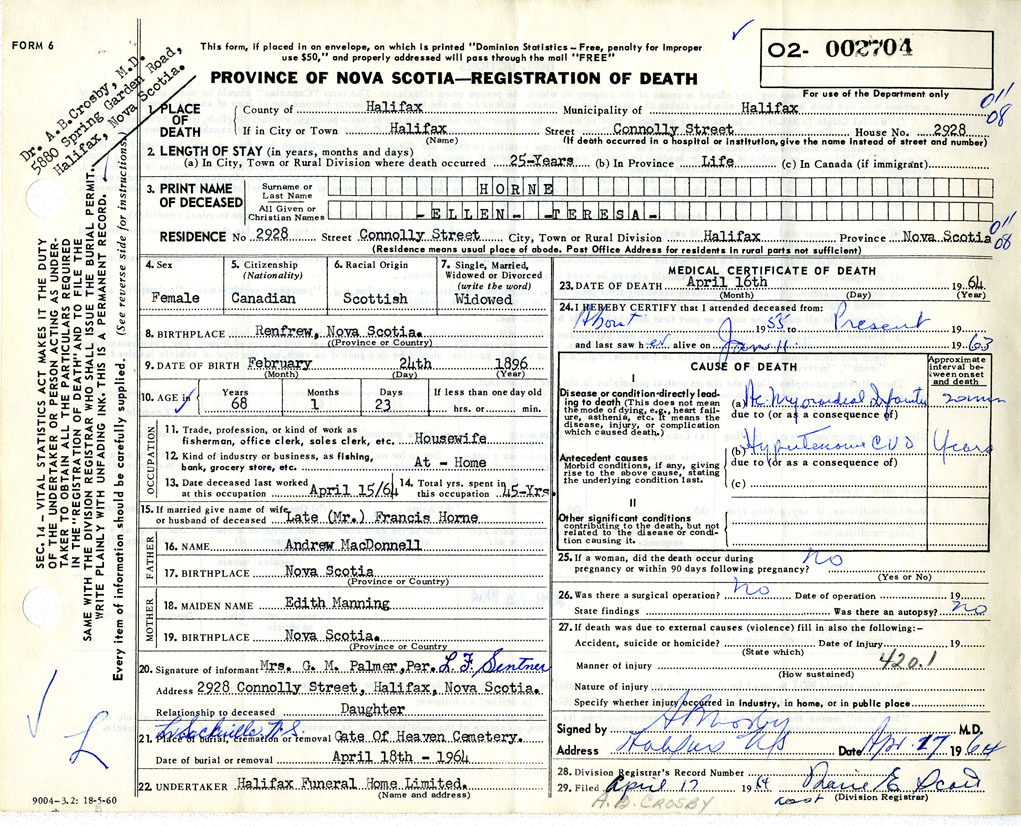 FORM 6
This form, if placed in an envelope, on which is printed "Dominion Statistics – Free, penalty for improper
use $50," and properly addressed will pass through the mail "FREE"
PROVINCE OF NOVA SCOTIA—REGISTRATION OF DEATH
O2- 002704
For use of the Department only
Dr. A.E.Crosby, M.D.
5880 Spring Garden Road,
Halifax, Nova Scotia.
011
08
1. PLACE OF DEATH
County of Halifax Municipality of Halifax
If in City or Town Halifax Street Connolly Street House No. 2928
(Name) (If death occurred in a hospital or institution, give the name instead of street and number)
2. LENGTH OF STAY (in years, months and days)
(a) In City, Town or Rural Division where death occurred 25-Years (b) In Province Life (c) In Canada (if immigrant)
3. PRINT NAME OF DECEASED
Surname or Last Name HORNE
All Given or Christian Names -ELLEN- -TERESA-
RESIDENCE No 2928 Street Connolly Street City, Town or Rural Division Halifax Province Nova Scotia
011
08
(Residence means usual place of abode. Post Office Address for residents in rural parts not sufficient)
SEC. 14 – VITAL STATISTICS ACT MAKES IT THE DUTY
OF THE UNDERTAKER OR PERSON ACTING AS UNDER-
TAKER TO OBTAIN ALL THE PARTICULARS REQUIRED
IN THE "REGISTRATION OF DEATH" AND TO FILE THE
SAME WITH THE DIVISION REGISTRAR WHO SHALL ISSUE THE BURIAL PERMIT.
WRITE PLAINLY WITH UNFADING INK. THIS IS A PERMANENT RECORD.
Every item of information should be carefully supplied. (See reverse side for instructions)
4. Sex
Female
5. Citizenship
(Nationality)
Canadian
6. Racial Origin
Scottish
7. Single, Married,
Widowed or Divorced
(write the word)
Widowed
8. BIRTHPLACE Renfrew, Nova Scotia.
(Province or Country)
9. DATE OF BIRTH February 24th 1896
(Month) (Day) (Year)
10. AGE in
Years Months Days If less than one day old
68 1 23 hrs. or min.
OCCUPATION
11. Trade, profession, or kind of work as
fisherman, office clerk, sales clerk, etc. Housewife
12. Kind of industry or business, as fishing,
bank, grocery store, etc. At - Home
13. Date deceased last worked
at this occupation April 15/64
14. Total yrs. spent in
this occupation 45-Yrs.
15. If married give name of wife
or husband of deceased Late (Mr.) Francis Horne
FATHER
16. NAME Andrew MacDonnell
17. BIRTHPLACE Nova Scotia
(Province or Country)
MOTHER
18. MAIDEN NAME Edith Manning
19. BIRTHPLACE Nova Scotia.
(Province or Country)
20. Signature of informant Mrs. G. M. Palmer,Per. L F. Sentner
Address 2928 Connolly Street, Halifax, Nova Scotia.
Relationship to deceased Daughter
Sackville N S.
21. Place of burial, cremation or removal Gate Of Heaven Cemetery.
Date of burial or removal April 18th - 1964
22. UNDERTAKER Halifax Funeral Home Limited.
(Name and address)
9004-3.2: 18-5-60
MEDICAL CERTIFICATE OF DEATH
23. DATE OF DEATH April 16th 1964
(Month) (Day) (Year)
24. I HEREBY CERTIFY that I attended deceased from:
About 1955 to Present 19
and last saw her alive on Jan 11 1963
CAUSE OF DEATH
Approximate
interval be-
tween onset
and death
I
Disease or condition directly lead-
ing to death (This does not mean
the mode of dying, e.g., heart fail-
ure, asthenia, etc. It means the
disease, injury, or complication
which caused death.)
(a) Ac. Myocardial Infarction 20 min
due to (or as a consequence of)
Antecedent causes
Morbid conditions, if any, giving
rise to the above cause, stating
the underlying condition last.
(b) Hypertensive C V D Years
due to (or as a consequence of)
(c)
II
Other significant conditions
contributing to the death, but not
related to the disease or condi-
tion causing it.
25. If a woman, did the death occur during
pregnancy or within 90 days following pregnancy? no
(Yes or No)
26. Was there a surgical operation? no Date of operation 19
State findings Was there an autopsy? no
27. If death was due to external causes (violence) fill in also the following:–
Accident, suicide or homicide? Date of injury 19
(State which)
Manner of injury 420.1
(How sustained)
Nature of injury
Specify whether injury occurred in industry, in home, or in public place
Signed by A B Crosby M.D.
Address Halifax NS Date Apr. 17 1964
28. Division Registrar's Record Number
29. Filed April 17 1964
(Division Registrar)
A. B. CROSBY